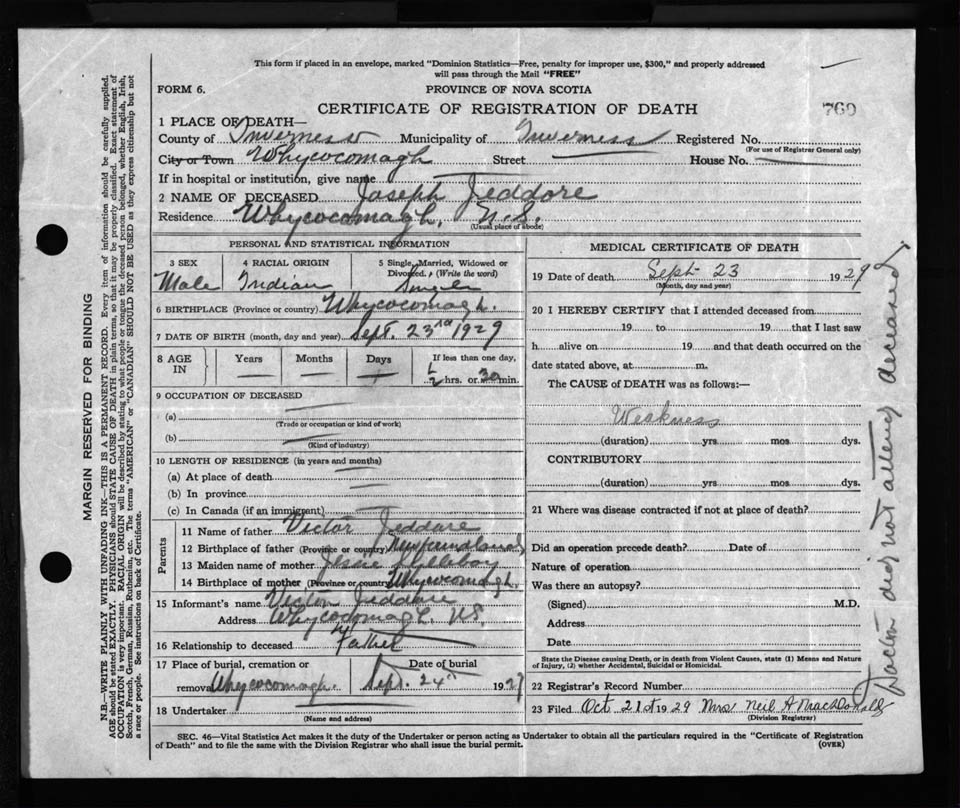 This form if placed in an envelope, marked "Dominion Statistics—Free, penalty for improper use, $300," and properly addressed
will pass through the Mail "FREE"
FORM 6.
PROVINCE OF NOVA SCOTIA
CERTIFICATE OF REGISTRATION OF DEATH
760
1 PLACE OF DEATH—
County of Inverness Municipality of Inverness Registered No.
(For use of Registrar General only)
City or Town Whycocomagh Street House No.
If in hospital or institution, give name
2 NAME OF DECEASED Joseph Jeddore
Residence Whycocomagh, N.S.
(Usual place of abode)
PERSONAL AND STATISTICAL INFORMATION
3 SEX
4 RACIAL ORIGIN
5 Single, Married, Widowed or
Divorced. (Write the word)
Male Indian Single
6 BIRTHPLACE (Province or country) Whycocomagh.
7 DATE OF BIRTH (month, day and year) Sept. 23rd 1929
8 AGE IN
Years
Months
Days
If less than one day,
hrs. or 30 min.
9 OCCUPATION OF DECEASED
(a)
(Trade or occupation or kind of work)
(b)
(Kind of industry)
10 LENGTH OF RESIDENCE (in years and months)
(a) At place of death
(b) In province
(c) In Canada (if an immigrant)
Parents
11 Name of father Victor Jeddore
12 Birthplace of father (Province or country) Newfoundland
13 Maiden name of mother
14 Birthplace of mother (Province or country) Whycocomagh.
15 Informant's name Victor Jeddore
Address Whycocomagh. N.S.
16 Relationship to deceased Father
17 Place of burial, cremation or
Date of burial
removal Whycocomagh. Sept. 24th 1929
18 Undertaker
(Name and address)
MEDICAL CERTIFICATE OF DEATH
19 Date of death Sept 23 1929
(Month, day and year)
20 I HEREBY CERTIFY that I attended deceased from
19 to 19 that I last saw
h alive on 19 and that death occurred on the
date stated above, at m.
The CAUSE of DEATH was as follows:—
Weakness
(duration) yrs mos dys.
CONTRIBUTORY
(duration) yrs mos dys.
21 Where was disease contracted if not at place of death?
Did an operation precede death? Date of
Nature of operation
Was there an autopsy?
(Signed) M.D.
Address
Date
State the Disease causing Death, or in death from Violent Causes, state (1) Means and Nature
of Injury, (2) whether Accidental, Suicidal or Homicidal.
22 Registrar's Record Number
23 Filed Oct 21st 1929 Mrs Neil A MacDonald
(Division Registrar)
Doctor did not attend deceased
SEC. 46—Vital Statistics Act makes it the duty of the Undertaker or person acting as Undertaker to obtain all the particulars required in the "Certificate of Registration
of Death" and to file the same with the Division Registrar who shall issue the burial permit.
(OVER)
MARGIN RESERVED FOR BINDING
N.B.—WRITE PLAINLY WITH UNFADING INK—THIS IS A PERMANENT RECORD. Every item of information should be carefully supplied.
AGE should be stated EXACTLY. PHYSICIANS should STATE CAUSE OF DEATH in plain terms, so that it may be properly classified. Exact statement of
OCCUPATION is very important. RACIAL ORIGIN will be described by stating to what people or tongue the deceased person belonged, whether English, Irish,
Scotch, French, German, Russian, Ruthenian, etc. The terms "AMERICAN" or "CANADIAN" SHOULD NOT BE USED as they express citizenship but not
a race or people. See instructions on back of Certificate.